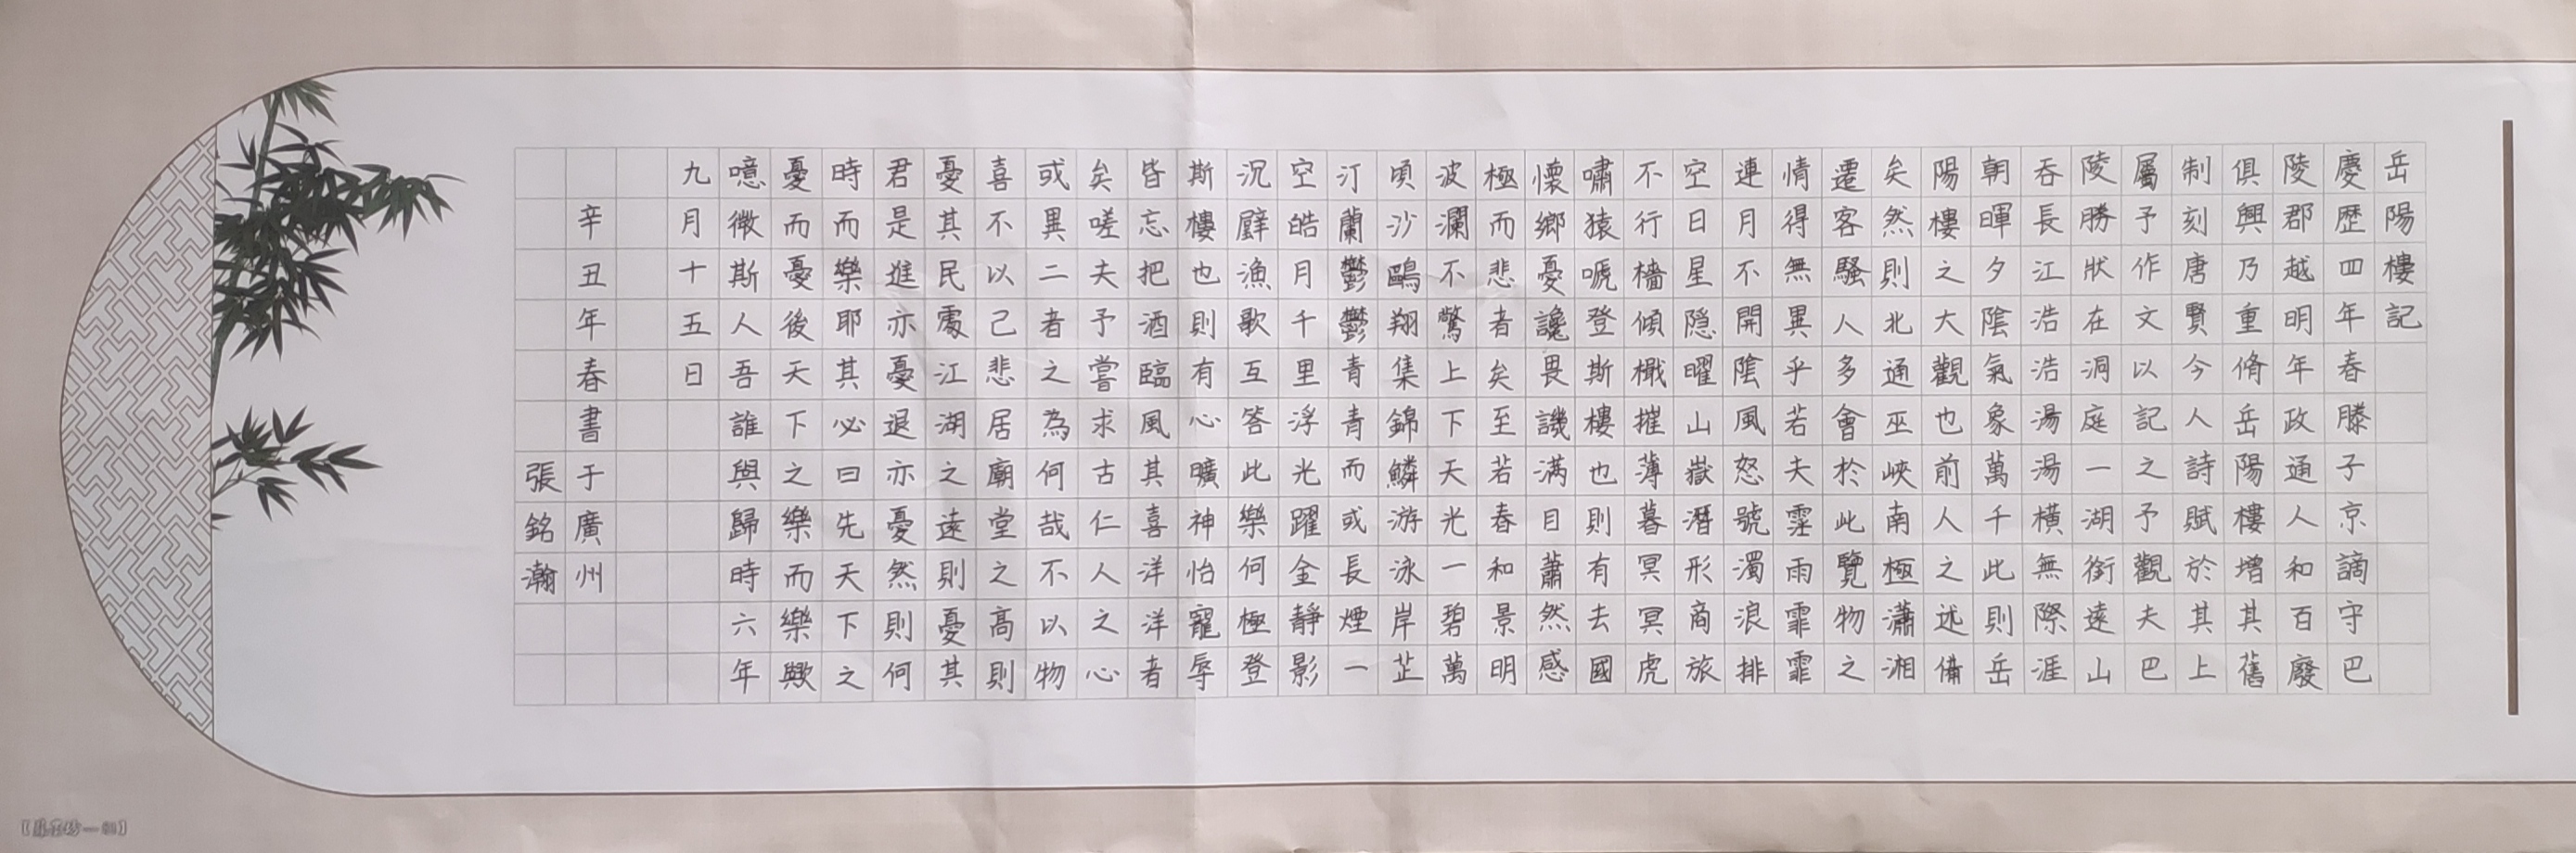 岳陽樓記
慶歷四年春滕子京謫守巴
陵郡越明年政通人和百廢
俱興乃重脩岳陽樓增其舊
制刻唐賢今人詩賦於其上
屬予作文以記之予觀夫巴
陵勝狀在洞庭一湖銜遠山
吞長江浩浩湯湯橫無際涯
朝暉夕陰氣象萬千此則岳
陽樓之大觀也前人之述備
矣然則北通巫峽南極瀟湘
遷客騷人多會於此覽物之
情得無異乎若夫霪雨霏霏
連月不開陰風怒號濁浪排
空日星隱曜山嶽潛形商旅
不行檣傾檝摧薄暮冥冥虎
嘯猿嗁登斯樓也則有去國
懷鄉憂讒畏譏滿目蕭然感
極而悲者矣至若春和景明
波瀾不驚上下天光一碧萬
頃沙鷗翔集錦鱗游泳岸芷
汀蘭鬱鬱青青而或長煙一
空皓月千里浮光躍金靜影
沉璧漁歌互答此樂何極登
斯樓也則有心曠神怡寵辱
皆忘把酒臨風其喜洋洋者
矣嗟夫予嘗求古仁人之心
或異二者之為何哉不以物
喜不以己悲居廟堂之高則
憂其民處江湖之遠則憂其
君是進亦憂退亦憂然則何
時而樂耶其必曰先天下之
憂而憂後天下之樂而樂歟
噫微斯人吾誰與歸時六年
九月十五日
辛丑年春書于廣州
張銘瀚